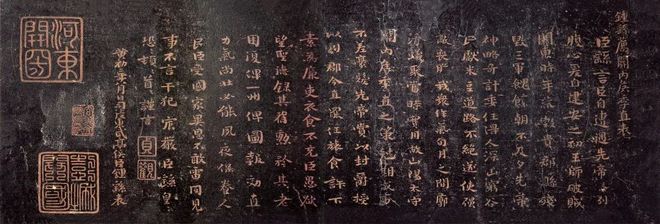 鍾繇薦關內侯季直表
臣繇言臣自遭遇先帝忝列
腹心爰自建安之初王師破賊
關東時年荒穀貴郡縣殘
毀三軍餽饟朝不及夕先帝
神略奇計委任得人深山窮谷
民獻米豆道路不絕遂使强
敵喪膽我衆作氣旬月之間廓
清蟻聚當時實用故山陽太守
關內侯季直之策剋期成事
不差豪髮先帝賞以封爵授
以劇郡今直罷任旅食許下
素爲廉吏衣食不充臣愚欲
望聖德錄其舊勳矜其老
困復俾一州俾圖報效直
力氣尚壯必能夙夜保養人
民臣受國家異恩不敢雷同見
事不言干犯宸嚴臣繇皇恐皇
恐頓首頓首謹言
貞觀
黃初二年八月日司徒東武亭侯臣鍾繇表
河東